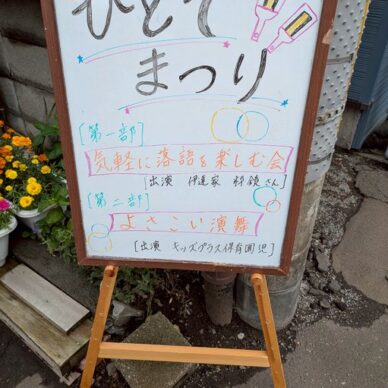 ひとて
まつり
[第一部]
気軽に落語を楽しむ会
[出演 伊達家 緑銭さん]
[第二部]
よさこい演舞
[出演 キッズプラス保育園児]